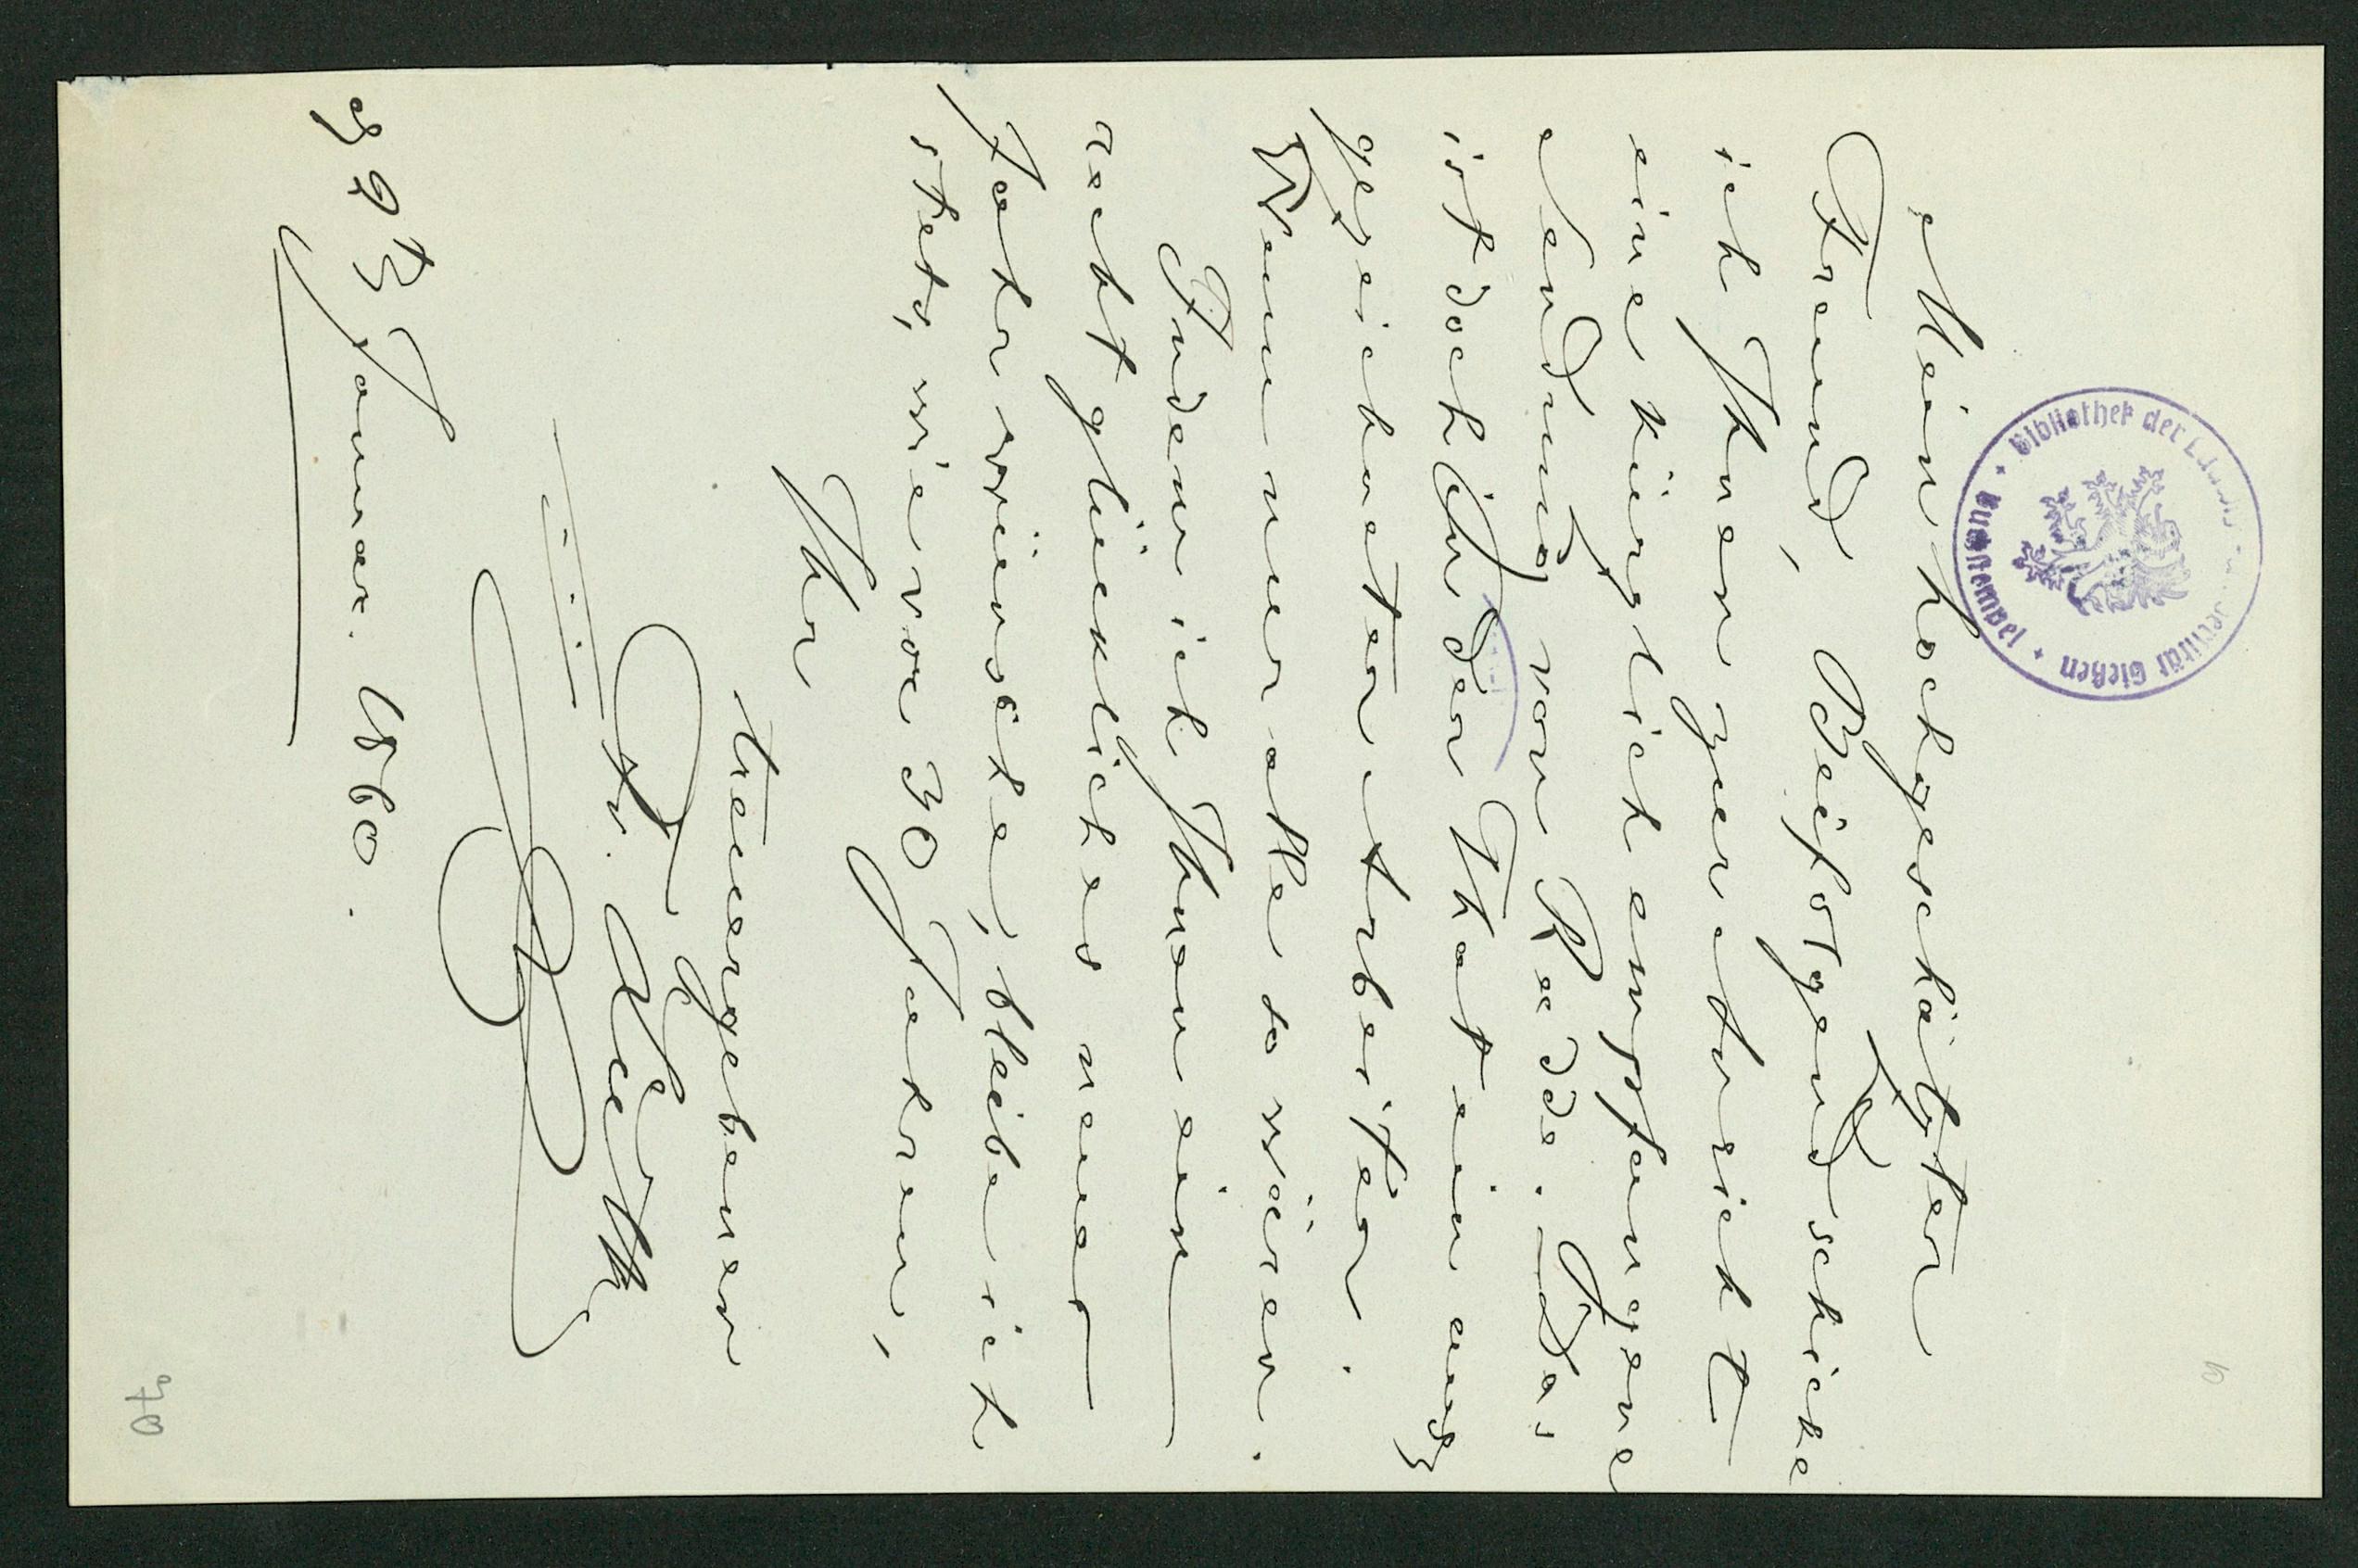 Bibliothek der Ludwigs-Universität Gießen
Tauschstempel
Mein hochgeschätzter
Freund, Beifolgend schicke
ich Ihnen zur Ansicht
eine kürzlich empfangene
Sendung von Raddé. Das
ist doch in der That ein aus
gezeichneter Arbeiter.
Wenn nur alle so wären.
Indem ich Ihnen ein
recht glückliches neues
Jahr wünsche, bleibe ich
stets, wie vor 30 Jahren,
Ihr
treuergebener
Januar. 1860.